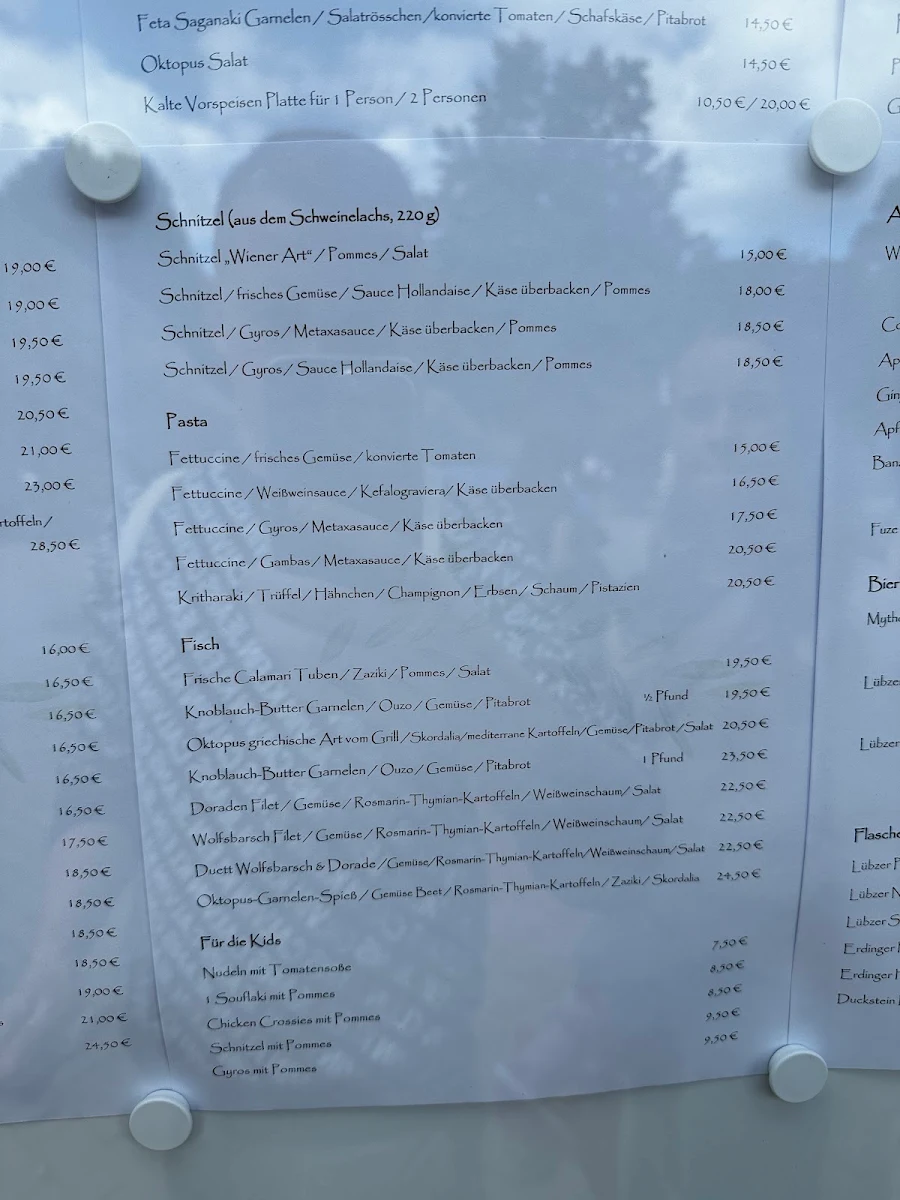 Feta Saganaki Garnelen / Salatrösschen /konvierte Tomaten / Schafskäse / Pitabrot 14,50 €
Oktopus Salat 14,50 €
Kalte Vorspeisen Platte für 1 Person / 2 Personen 10,50 € / 20,00 €
Schnitzel (aus dem Schweinelachs, 220 g)
Schnitzel „Wiener Art“ / Pommes / Salat 15,00 €
Schnitzel / frisches Gemüse / Sauce Hollandaise / Käse überbacken / Pommes 18,00 €
Schnitzel / Gyros / Metaxasauce / Käse überbacken / Pommes 18,50 €
Schnitzel / Gyros / Sauce Hollandaise / Käse überbacken / Pommes 18,50 €
Pasta
Fettuccine / frisches Gemüse / konvierte Tomaten 15,00 €
Fettuccine / Weißweinsauce / Kefalograviera / Käse überbacken 16,50 €
Fettuccine / Gyros / Metaxasauce / Käse überbacken 17,50 €
Fettuccine / Gambas / Metaxasauce / Käse überbacken 20,50 €
Kritharaki / Trüffel / Hähnchen / Champignon / Erbsen / Schaum / Pistazien 20,50 €
Fisch
Frische Calamari Tuben / Zaziki / Pommes / Salat 19,50 €
Knoblauch-Butter Garnelen / Ouzo / Gemüse / Pitabrot ½ Pfund 19,50 €
Oktopus griechische Art vom Grill /Skordalia/mediterrane Kartoffeln/Gemüse/Pitabrot/Salat 20,50 €
Knoblauch-Butter Garnelen / Ouzo / Gemüse / Pitabrot 1 Pfund 23,50 €
Doraden Filet / Gemüse / Rosmarin-Thymian-Kartoffeln / Weißweinschaum/ Salat 22,50 €
Wolfsbarsch Filet / Gemüse / Rosmarin-Thymian-Kartoffeln / Weißweinschaum/ Salat 22,50 €
Duett Wolfsbarsch & Dorade /Gemüse/Rosmarin-Thymian-Kartoffeln/Weißweinschaum/Salat 22,50 €
Oktopus-Garnelen-Spieß / Gemüse Beet / Rosmarin-Thymian-Kartoffeln / Zaziki / Skordalia 24,50 €
Für die Kids
Nudeln mit Tomatensoße 7,50 €
1 Souflaki mit Pommes 8,50 €
Chicken Crossies mit Pommes 8,50 €
Schnitzel mit Pommes 9,50 €
Gyros mit Pommes 9,50 €
19,00 €
19,00 €
19,50 €
19,50 €
20,50 €
21,00 €
23,00 €
rtoffeln /
28,50 €
16,00 €
16,50 €
16,50 €
16,50 €
16,50 €
16,50 €
17,50 €
18,50 €
18,50 €
18,50 €
18,50 €
19,00 €
21,00 €
24,50 €
Ap
Gin
Apf
Ban
Fuze
Bier
Myth
Lübze
Lübzer
Flasche
Lübzer P
Lübzer N
Lübzer S
Erdinger
Erdinger
Duckstein